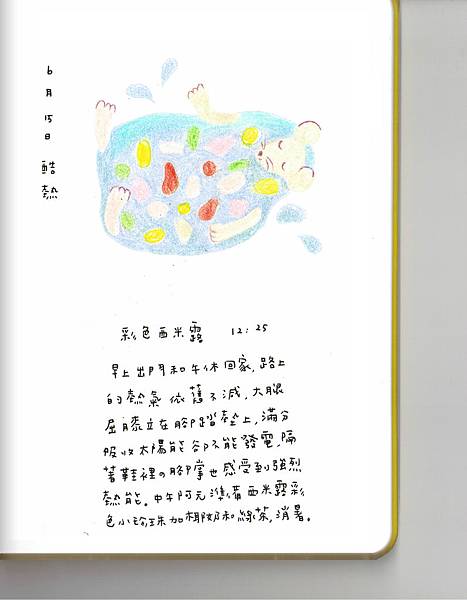 6月15日 酷熱
彩色西米露 12:25
早上出門和午休回家,路上
的熱氣依舊不減,大腿
屈膝立在腳踏墊上,滿分
吸收太陽能卻不能發電,隔
著鞋裡の腳掌也感受到強烈
熱能。中午阿元準備西米露彩
色小珍珠加椰奶和綠茶,消暑。